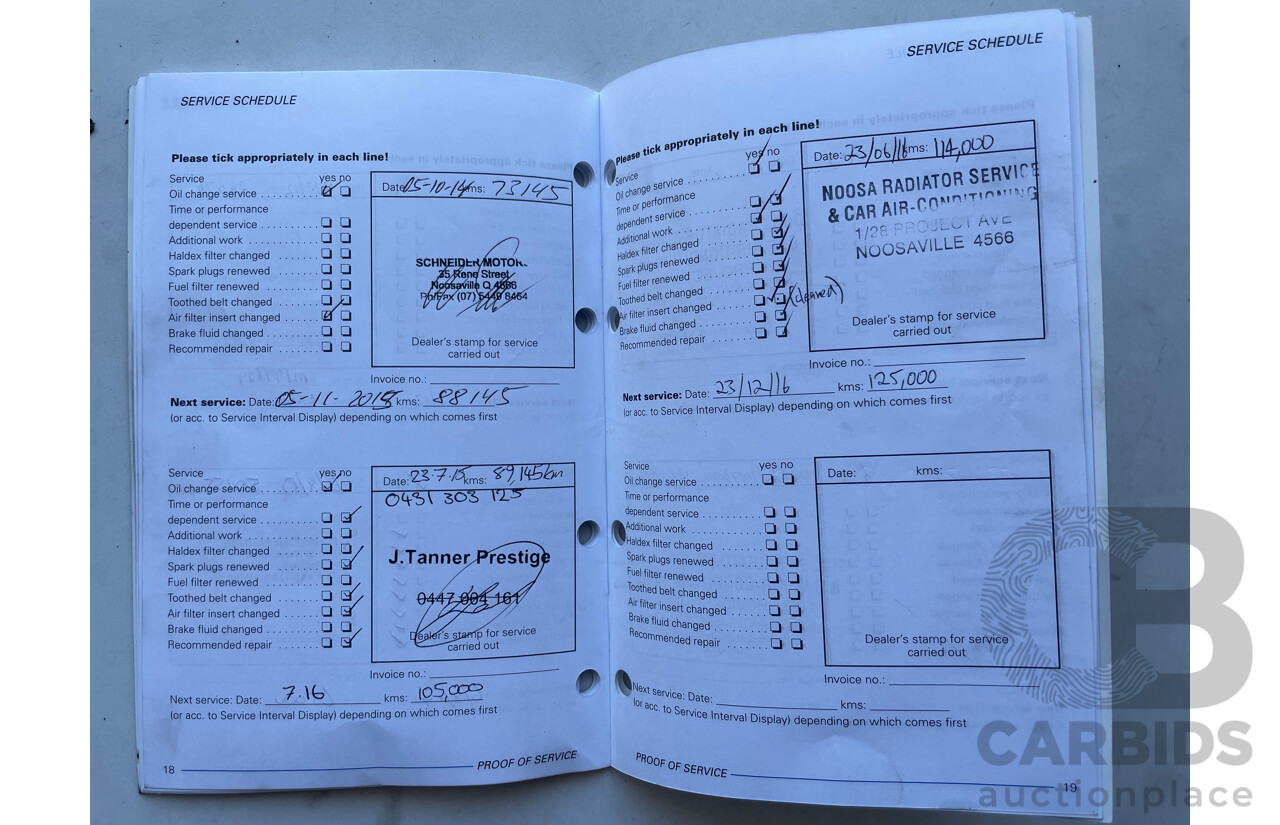 SERVICE SCHEDULE
Please tick appropriately in each line!
Service yes no
Oil change service
Time or performance
dependent service
Additional work
Haldex filter changed
Spark plugs renewed
Fuel filter renewed
Toothed belt changed
Air filter insert changed
Brake fluid changed
Recommended repair
Date: 05-10-14 kms: 73145
SCHNEIDER MOTOR
35 Rene Street
Noosaville Q 4566
Ph/Fax (07) 5449 8464
Dealer's stamp for service
carried out
Invoice no.:
Next service: Date: 05-11-2015 kms: 88145
(or acc. to Service Interval Display) depending on which comes first
Service yes no
Oil change service
Time or performance
dependent service
Additional work
Haldex filter changed
Spark plugs renewed
Fuel filter renewed
Toothed belt changed
Air filter insert changed
Brake fluid changed
Recommended repair
Date: 23.7.15 kms: 89,145km
0431 303 125
J.Tanner Prestige
0447 004 161
Dealer's stamp for service
carried out
Invoice no.:
Next service: Date: 7.16 kms: 105,000
(or acc. to Service Interval Display) depending on which comes first
18 PROOF OF SERVICE
SERVICE SCHEDULE
Please tick appropriately in each line!
Service yes no
Oil change service
Time or performance
dependent service
Additional work
Haldex filter changed
Spark plugs renewed
Fuel filter renewed
Toothed belt changed
Air filter insert changed (cleaned)
Brake fluid changed
Recommended repair
Date: 23/06/16 kms: 114,000
NOOSA RADIATOR SERVICE
& CAR AIR-CONDITIONING
1/28 PROJECT AVE
NOOSAVILLE 4566
Dealer's stamp for service
carried out
Invoice no.:
Next service: Date: 23/12/16 kms: 125,000
(or acc. to Service Interval Display) depending on which comes first
Service yes no
Oil change service
Time or performance
dependent service
Additional work
Haldex filter changed
Spark plugs renewed
Fuel filter renewed
Toothed belt changed
Air filter insert changed
Brake fluid changed
Recommended repair
Date: kms:
Dealer's stamp for service
carried out
Invoice no.:
Next service: Date: kms:
(or acc. to Service Interval Display) depending on which comes first
PROOF OF SERVICE 19
CB
CARBIDS
auctionplace